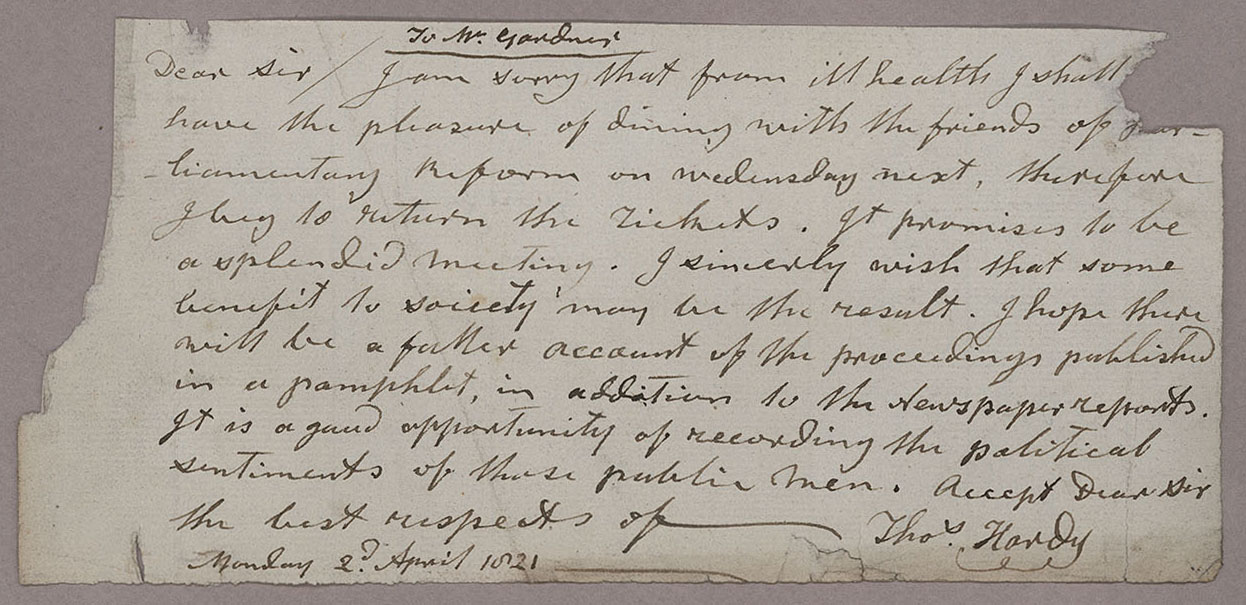 To Mr. Gardner
Dear Sir / I am sorry that from ill health I shall
have the pleasure of dining with the friends of Par-
-liamentary Reform on wedensday next, therefore
I beg to return the Tickets. It promises to be
a splendid meeting. I sincerly wish that some
benefit to soicety may be the result. I hope there
will be a fuller account of the proceedings published
in a pamphlet, in addition to the Newspaper reports.
It is a good opportunity of recording the political
sentiments of those public men. Accept Dear Sir
the best respects of
Thos. Hardy
Monday 2d. April 1821